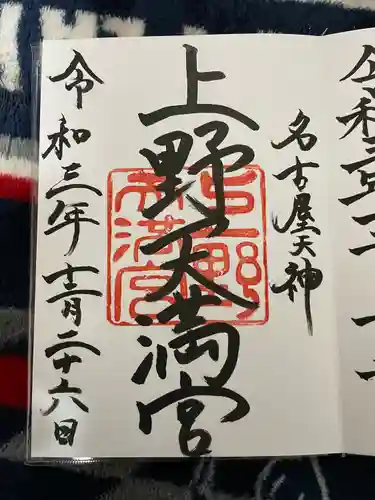 名古屋天神
上野天満宮
上野天満宮
令和三年十二月二十六日
令和三年十